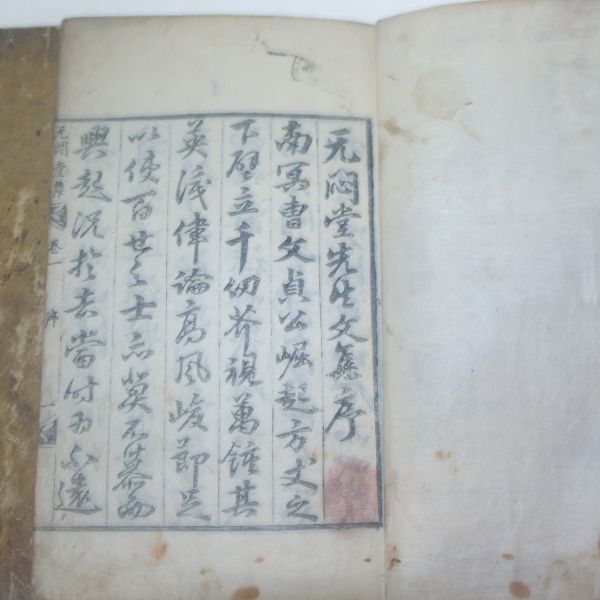 无悶堂先生文集序
南冥曺文貞公崛起方丈之
下壁立千仞芥視萬鍾其
英淺偉論高風峻節足
以使百世之士亦莫不慕而
興起況於在當時而不遠
无悶堂集 卷一 序 一